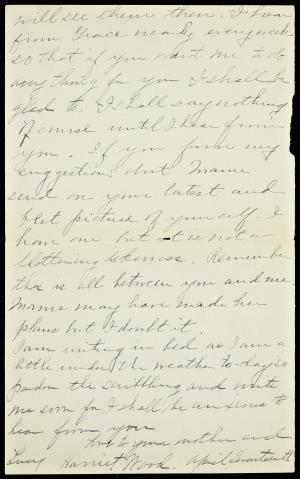 will see them then. I hear
from Grace nearly every week
so that if you want me to do
any thing for you I shall be
glad to. I shall say nothing
of course until I hear from
you. If you favor my
suggestions about Mame
send on your latest and
best picture of yourself. I
have one but it is not a
flattering likeness. Remember
this is all between you and me.
Mame may have made her
plans but I doubt it.
I am writing in bed as I am a
little under the weather to-day so
pardon the scribbling and write
me soon for I shall be anxious to
hear from you
Love to your mother and
Lucy Harriet Wood. April Seventeenth